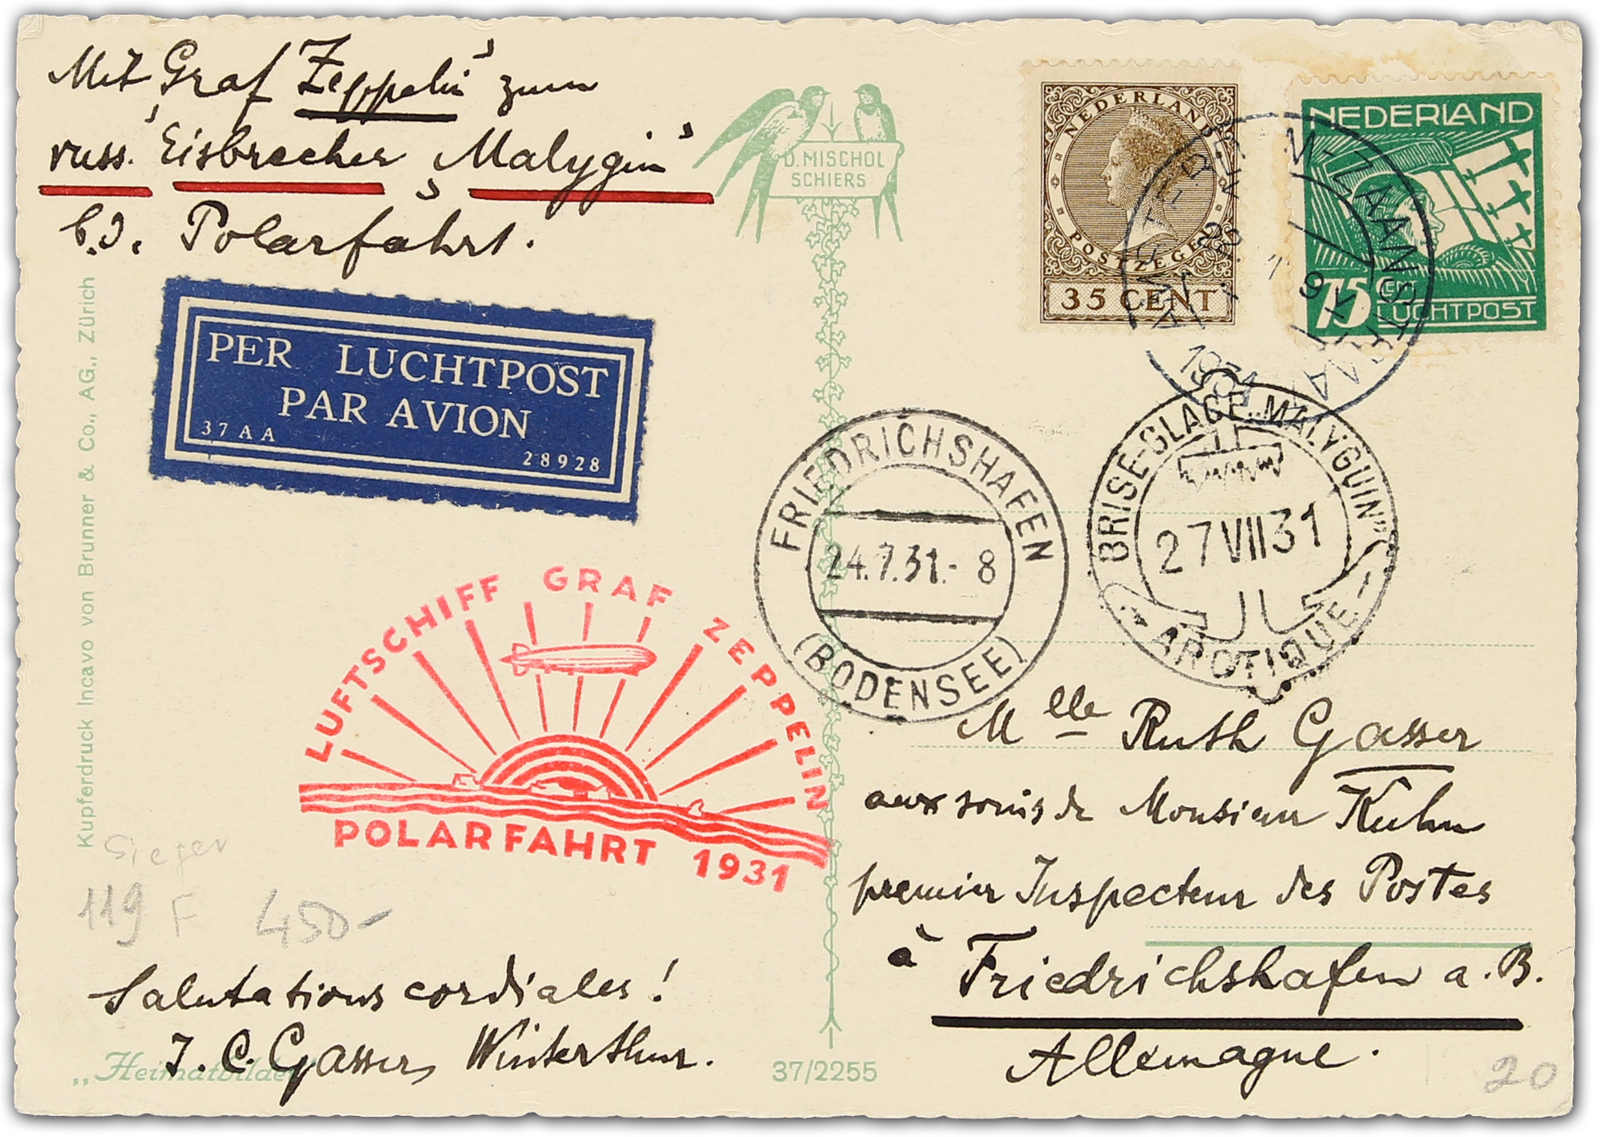 Mit Graf Zeppelin' zum
russ. 'Eisbrecher „Malygin'
b. d. Polarfahrt.
D. MISCHOL
SCHIERS
NEDERLAND
POSTZEGEL
35 CENT
NEDERLAND
75 CENT
LUCHTPOST
1931
PER LUCHTPOST
PAR AVION
37AA
28928
Kupferdruck Incavo von Brunner & Co., AG., Zürich
FRIEDRICHSHAFEN
24.7.31.- 8
(BODENSEE)
BRISE-GLACE „MALYGUIN"
27 VII 31
ARCTIQUE
LUFTSCHIFF GRAF ZEPPELIN
POLARFAHRT 1931
Mlle Ruth Gasser
aux soins de Monsieur Kuhn
premier Inspecteur des Postes
à Friedrichshafen a. B.
Allemagne.
Sieger
119 F 450-
Salutations cordiales!
J. C. Gasser, Winterthur.
„Heimatbilder
37/2255
20